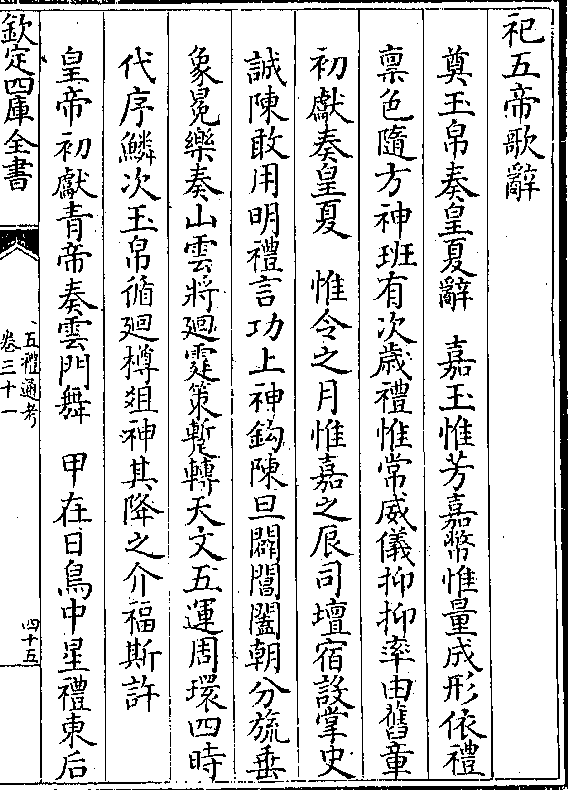 祀五帝歌辭
奠玉帛奏皇夏辭　嘉玉惟芳嘉幣惟量成形依禮
禀色隨方神班有次歲禮惟常威儀抑抑率由舊章
初獻奏皇夏　惟令之月惟嘉之辰司壇宿設掌史
誠陳敢用明禮言功上神鈎陳旦闢閶闔朝分旒垂
象冕樂奏山雲將廻霆策暫轉天文五運周環四時
代序鱗次玉帛循廻樽俎神其降之介福斯許
皇帝初獻青帝奏雲門舞　甲在日鳥中星禮東后
欽定四庫全書
五禮通考
卷三十一
四十五